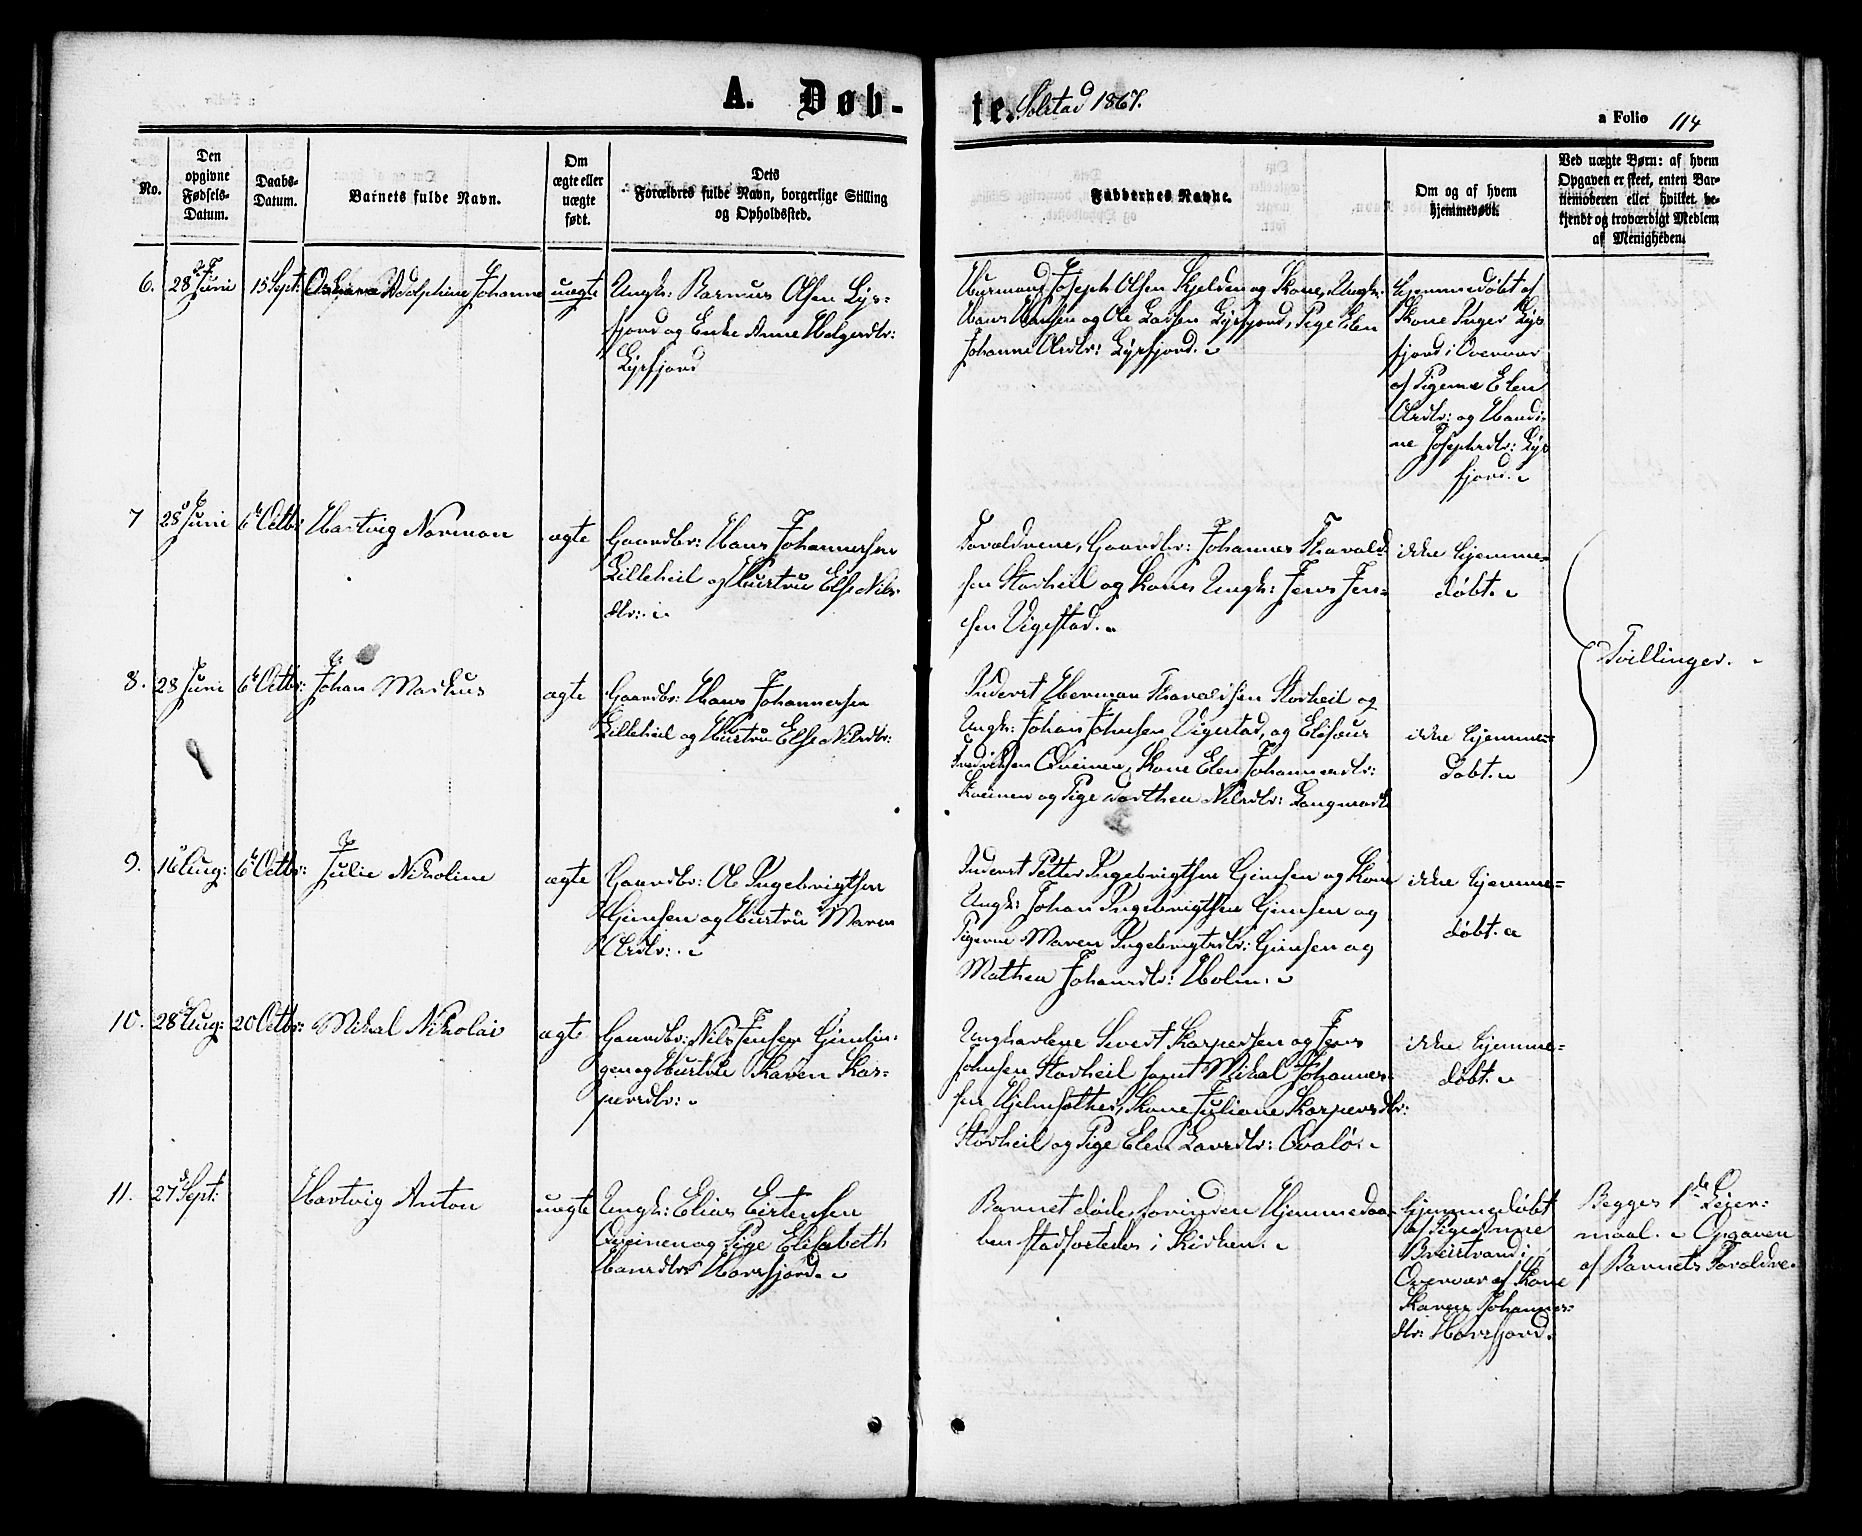 A. Døb-
te. Solstad 1867.
a Folio 114
No.
Den
opgivne
Fødsels-
Datum.
Daabs-
Datum.
Barnets fulde Navn.
Om
ægte eller
uægte
født.
Dets
Forældres fulde Navn, borgerlige Stilling
og Opholdssted.
Faddernes Navne.
Om og af hvem
hjemmedøbt.
Ved uægte Børn: af hvem
Opgaven er skeet, enten Bar-
nemoderen eller hvilket be-
kjendt og troværdigt Medlem
af Menigheden.
6.
28 Juni
15 Sept:
Adolphine Johanne
uægte
Ungk: Rasmus Olsen Lys-
fjord og Enke Anne Helgersdtr:
Lysfjord
Huusmand Joseph Olsen Kjelden og Kone, Ungk:
Hans Hansen og Ole Larsen Lysfjord, Pige Elen
Johanne Olsdtr: Lysfjord.
hjemmedøbt af
Kone Inger Lys
fjord i Overvær
af Pigerne Elen
Olsdtr: og Handi-
ne Josephsdtr: Lys
fjord.
7
28 Juni
6 Octbr:
Hartvig Norman
ægte
Gaardbr: Hans Johannessen
Lilleheil og Hustru Else Nils
dtr:.
Forældrene, Gaardbr: Johannes Thorvald
sen Storheil og Kone, Ungk: Jens Jen-
sen Vigestad.
ikke hjemme-
døbt.
Tvillinger.
8.
28 Juni
6 Octbr:
Johan Markus
ægte
Gaardbr: Hans Johannessen
Lilleheil og Hustru Else Nilsdtr:
Inderst Herman Thorvaldsen Storheil og
Ungk: Johan Johnsen Vigestad, og Elisæus
Fredriksen Qveinen, Kone Elen Johannesdtr:
Kveinen og Pige Dorthea Nilsdtr: Langmark
ikke hjemme-
døbt.
9.
16 Aug:
6 Octbr:
Julie Nikoline
ægte
Gaardbr: Ole Ingebrigtsen
Gimsen og Hustru Maren
Olsdtr:.
Inderst Petter Ingebrigtsen Gimsen og Kone
Ungk: Johan Ingebrigtsen Gimsen og
Pigerne Maren Ingebrigtsdtr: Gimsen og
Mathea Johansdtr: Holm.
ikke hjemme-
døbt.
10.
28 Aug:
20 Octbr:
Mikal Nikolai
ægte
Gaardbr: Nils Jensen Gimlin-
gen og Hustru Karen Kas-
persdtr:
Ungkarlene Sivert Kaspersen og Jens
Johnsen Storheil samt Mikal Johannes-
sen Hjelmsøther, Kone Juliane Kaspersdtr:
Storheil og Pige Elen Larsdtr: Qvalø.
ikke hjemme-
døbt.
11.
27 Sept:
Hartvig Anton
uægte
Ungk: Elias Eistensen
Qveinen og Pige Elisabeth
Hansdtr: Horsfjord.
Barnet døde forinden Hjemmedaa-
ben stadfæstedes i Kirken.
hjemmedøbt
af Pige Anne
Breistrand i
Overvær af Kone
Karen Johannes-
dtr: Horsfjord.
Begges 1ste Leier-
maal. Opgaven
af Barnets Forældre.